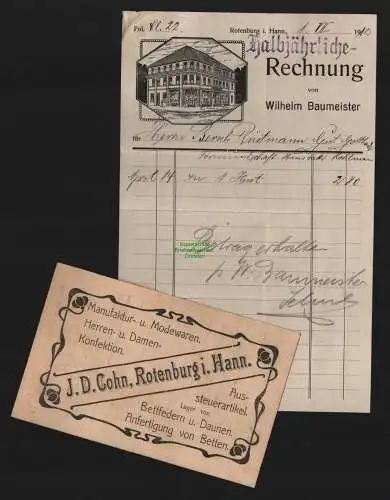 Fol.
Rotenburg i. Hann.,
Halbjährliche-
Rechnung
von
Wilhelm Baumeister
für Herrn
April 14 1 Hut 2/80
Betrag erhalten
p. W. Baumeister
Manufaktur- u. Modewaren.
Herren- u. Damen-
Konfektion.
J. D. Cohn, Rotenburg i. Hann.
Aus-
steuerartikel.
Lager von
Bettfedern u. Daunen.
Anfertigung von Betten.